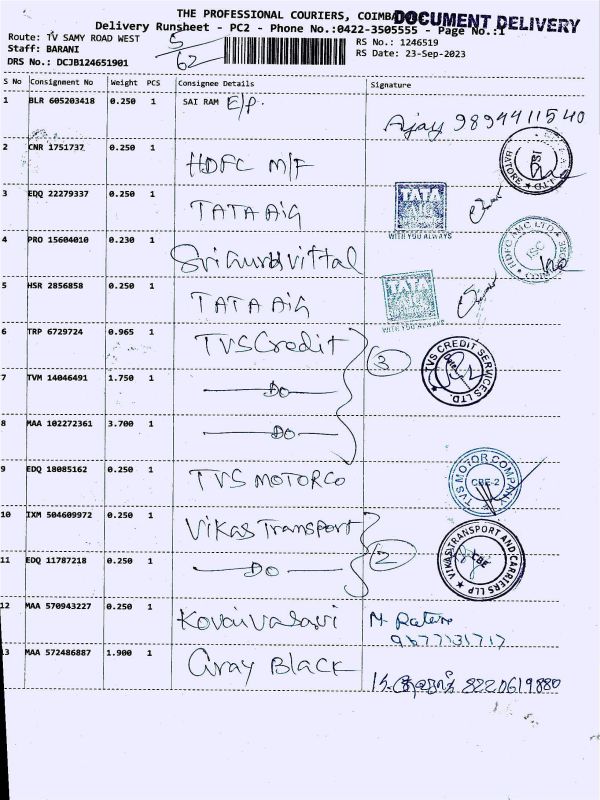 THE PROFESSIONAL COURIERS, COIMBA
DOCUMENT DELIVERY
Delivery Runsheet - PC2 - Phone No.:0422-3505555 - Page No.:1
Route: TV SAMY ROAD WEST
Staff: BARANI
DRS No.: DCJB124651901
5/62
RS No.: 1246519
RS Date: 23-Sep-2023
S No Consignment No Weight PCS Consignee Details Signature
1 BLR 605203418 0.250 1 SAI RAM E/P. Ajay 9894411540
2 CNR 1751737 0.250 1 HDFC M/F
3 EDQ 22279337 0.250 1 TATA AiG
TATA AIG
WITH YOU ALWAYS
4 PRO 15604010 0.230 1 Sri Guru Vittal
HDFC AMC LTD. ISC
5 HSR 2856858 0.250 1 TATA AiG
TATA AIG
WITH YOU ALWAYS
6 TRP 6729724 0.965 1 TVS Credit 3
TVS CREDIT SERVICES LTD.
7 TVM 14046491 1.750 1 Do
8 MAA 102272361 3.700 1 Do
9 EDQ 18085162 0.250 1 TVS MOTOR Co
TVS MOTOR COMPANY CBE-2
10 IXM 504609972 0.250 1 Vikas Transport 2
VIKAS TRANSPORT AND CARRIERS LLP CBE
11 EDQ 11787218 0.250 1 Do
12 MAA 570943227 0.250 1 Kovai Vasavi
9677131717
13 MAA 572486887 1.900 1 Gray Black 8220619880